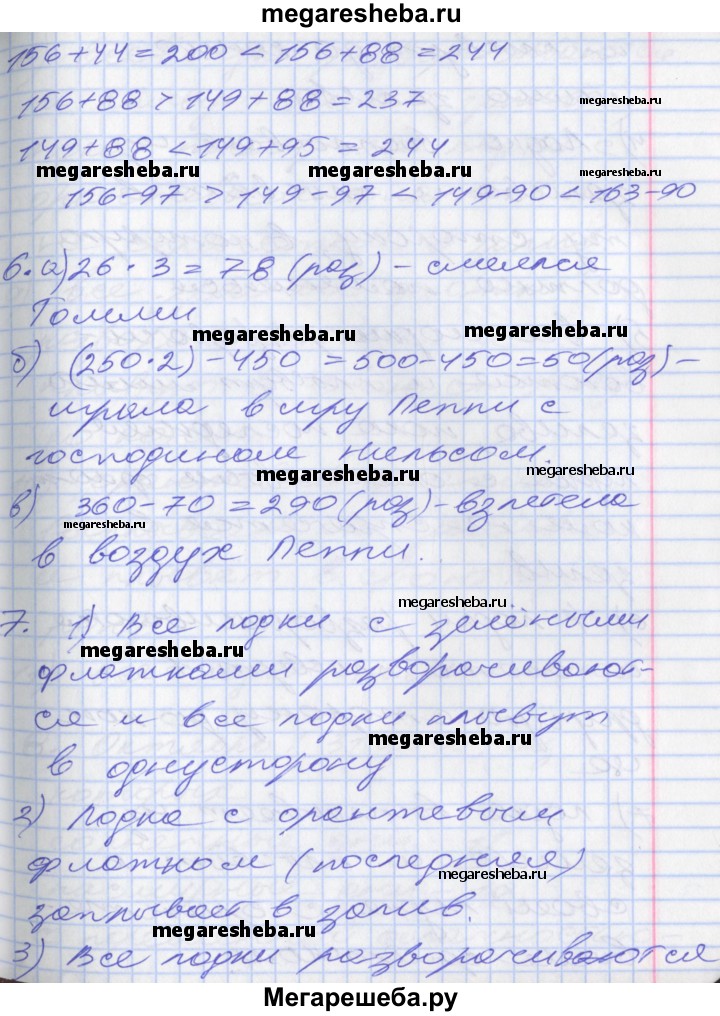 megaresheba.ru
156+44=200 < 156+88=244
156+88 > 149+88=237
megaresheba.ru
149+88 < 149+95 = 244
megaresheba.ru megaresheba.ru megaresheba.ru
156-97 > 149-97 < 149-90 < 163-90
6. а) 26 · 3 = 78 (раз) - смеялся
Томми
megaresheba.ru megaresheba.ru
б) (250·2) - 450 = 500-450=50(раз) -
играла в игру Пеппи с
господином Нильсом.
megaresheba.ru megaresheba.ru
в) 360-70 = 290 (раз) - взлетела
megaresheba.ru
в воздух Пеппи.
megaresheba.ru
7. 1) Все лодки с зелёными
megaresheba.ru
флажками разворачивают-
ся и все лодки плывут
megaresheba.ru
в однусторону
2) Лодка с оранжевым
флажком (последняя)
megaresheba.ru
заплывает в залив.
megaresheba.ru
3) Все лодки разворачиваются
Мегарешеба.ру